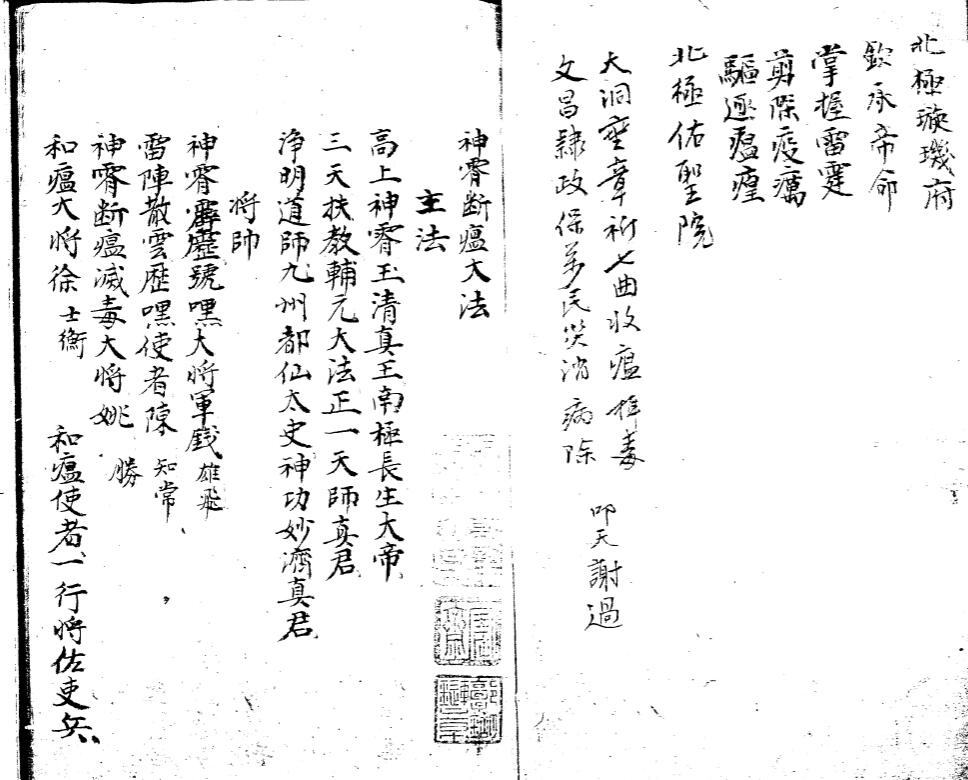 北極璇璣府
欽承帝命
掌握雷霆
剪除疫癘
驅逐瘟瘴
北極佑聖院
大洞靈章祈七曲收瘟攝毒 叩天謝過
文昌隸政保萬民災消病除
神霄断瘟大法
主法
高上神霄玉清真王南極長生大帝
三天扶教輔元大法正一天師真君
淨明道師九州都仙太史神功妙濟真君
将帥
神霄霹靂號嘿大将軍錢雄飛
雷陣散雲歷嘿使者陳知常
神霄断瘟滅毒大将姚勝
和瘟大将徐士衡 和瘟使者一行将佐吏兵